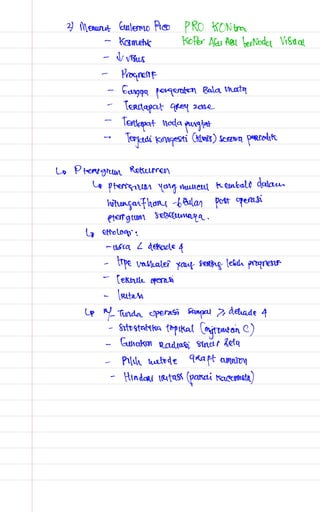 2) Menurut Guilermo Pico PRO KONtra
- Kosmetik Koper Abu Abu berNoda Visual
- ↓ visus
- Progresif
- Ganggu pergerakan Bola mata
- Terdapat grey zone
- Terdapat noda pungtat
- Terjadi kongesti secara periodik
↳ Pterygium Rekuren
↳ pterygium yang muncul kembali dalam
hitungan 1 hari - 6 bulan post operasi
pterygium sebelumnya.
↳ etiologi :
- usia < dekade 4
- tipe vaskuler yang sering lebih progresif
- teknik operasi
- iritasi
↳ - Tunda operasi sampai ≥ dekade 4
- sitostatika topikal (mitomisin C)
- Gunakan Radiasi sinar Beta
- Pilih metode graft amnion
- Hindari iritasi (pakai kacamata)